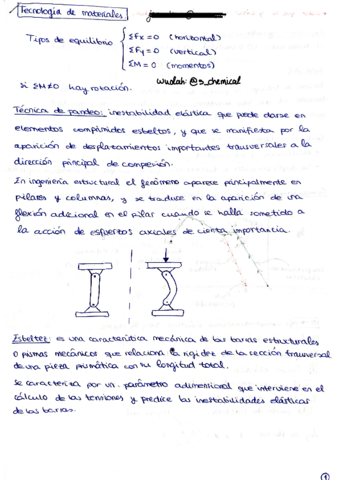 Tecnología de materiales
Tipos de equilibrio
ΣFx = 0 (horizontal)
ΣFy = 0 (vertical)
ΣM = 0 (momentos)
wuolah: @s_chemical
si ΣM≠0 hay rotación.
Técnica de pandeo: inestabilidad elástica que puede darse en
elementos comprimidos esbeltos, y que se manifiesta por la
aparición de desplazamientos importantes transversales a la
dirección principal de compresión.
En ingeniería estructural el fenómeno aparece principalmente en
pilares y columnas, y se traduce en la aparición de una
flexión adicional en el pilar cuando se halla sometido a
la acción de esfuerzos axiales de cierta importancia.
Esbeltez: es una característica mecánica de las barras estructurales
o prismas mecánicos que relaciona la rigidez de la sección transversal
de una pieza prismática con su longitud total.
Se caracteriza por un parámetro adimensional que interviene en el
cálculo de las tensiones y predice las inestabilidades elásticas
de las barras.
1